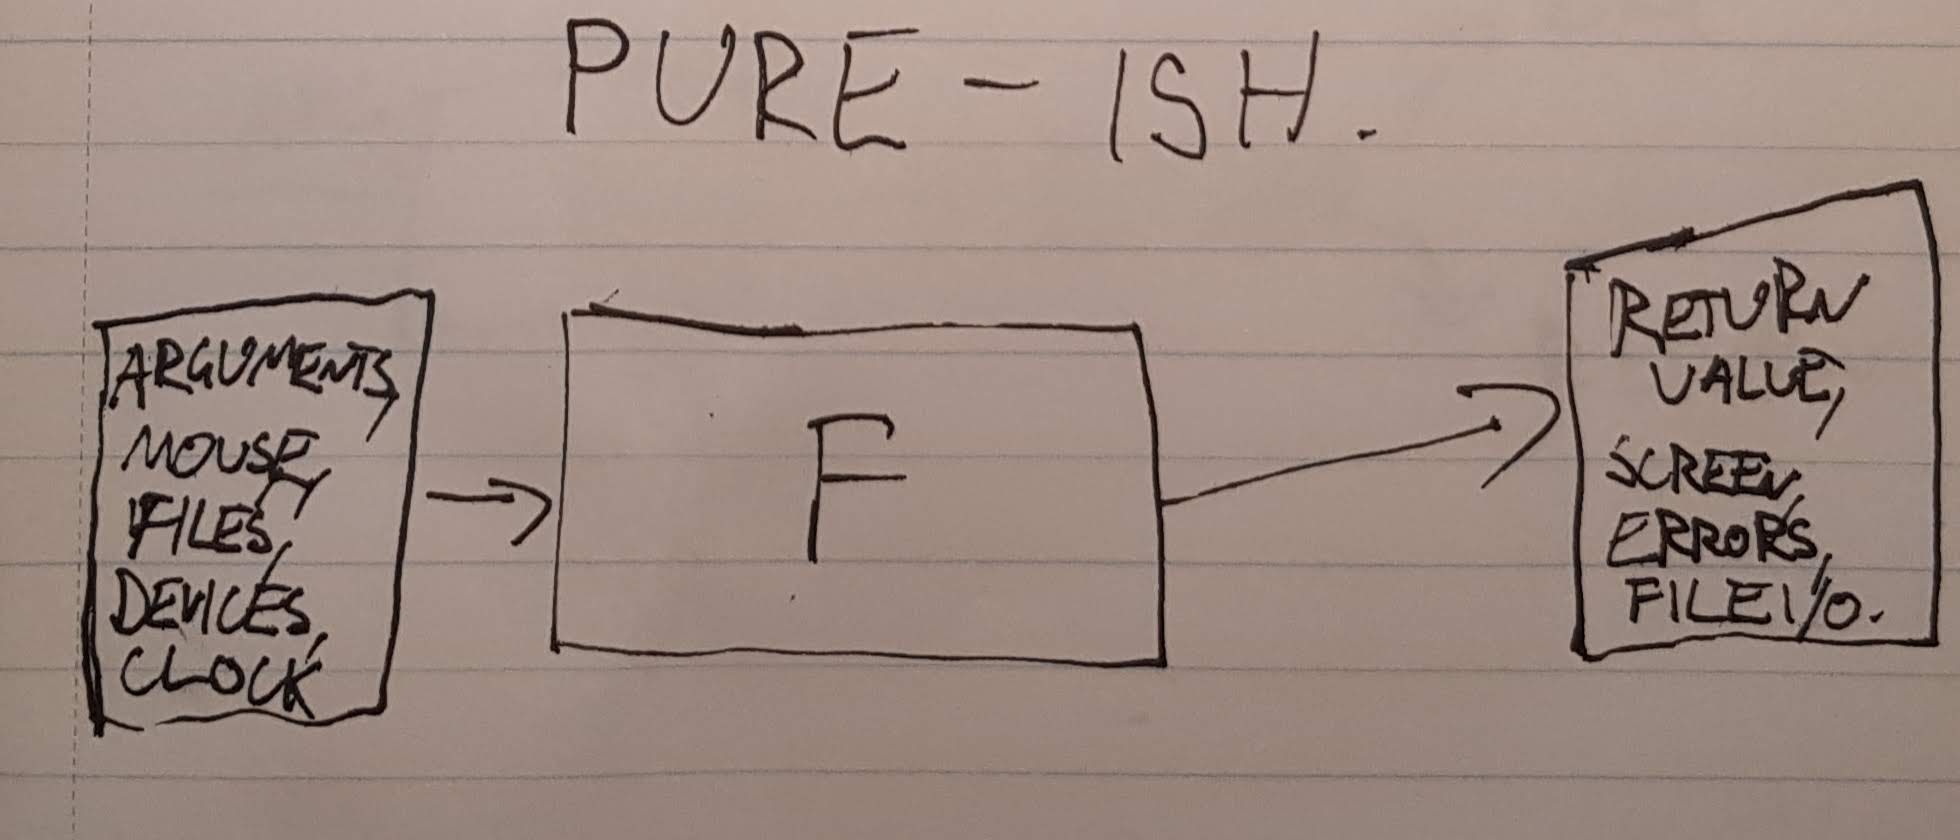 PURE-ISH.
ARGUMENTS,
MOUSE,
FILES,
DEVICES,
CLOCK
F
RETURN
VALUE,
SCREEN,
ERRORS,
FILE I/O.